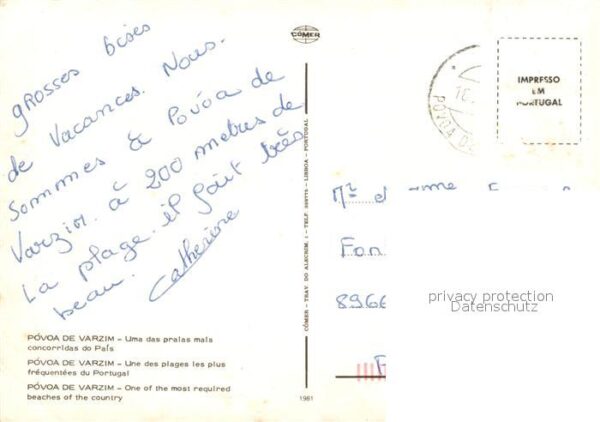 grosses bises
de Vacances. Nous.
Sommes à Póvóa de
Varzim. à 200 metres de
La plage. il fait très
beau.
Catherine
PÓVOA DE VARZIM – Uma das praias mais
concorridas do País
PÓVOA DE VARZIM – Une des plages les plus
fréquentées du Portugal
PÓVOA DE VARZIM – One of the most required
beaches of the country
CÓMER
CÓMER – TRAV. DO ALECRIM, 1 – TELF. – LISBOA – PORTUGAL
1981
PÓVOA DE
IMPRESSO
EM
PORTUGAL
Fon
8966
F
privacy protection
Datenschutz